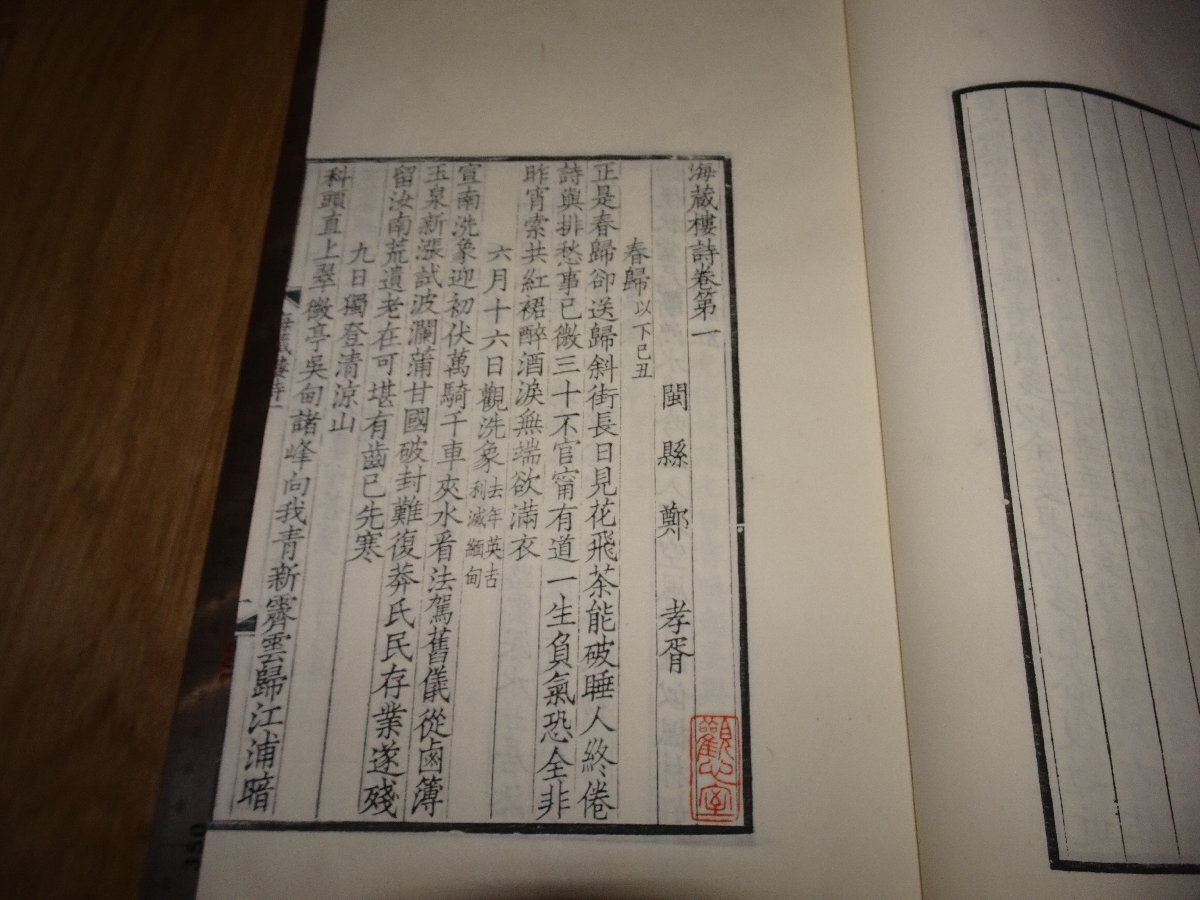 海藏樓詩卷第一
閩縣鄭孝胥
春歸以下己丑
正是春歸卻送歸斜街長日見花飛茶能破睡人終倦
詩與排愁事已微三十不官甯有道一生負氣恐全非
昨宵索共紅裙醉酒淚無端欲滿衣
六月十六日觀洗象去年英吉利滅緬甸
宣南洗象迎初伏萬騎千車夾水看法駕舊儀從鹵簿
玉泉新漲試波瀾蒲甘國破封難復莽氏民存業遂殘
留汝南荒遺老在可堪有齒已先寒
九日獨登清涼山
科頭直上翠微亭吳甸諸峰向我青新霽雲歸江浦暗
海藏樓詩一
一
觀心室
350